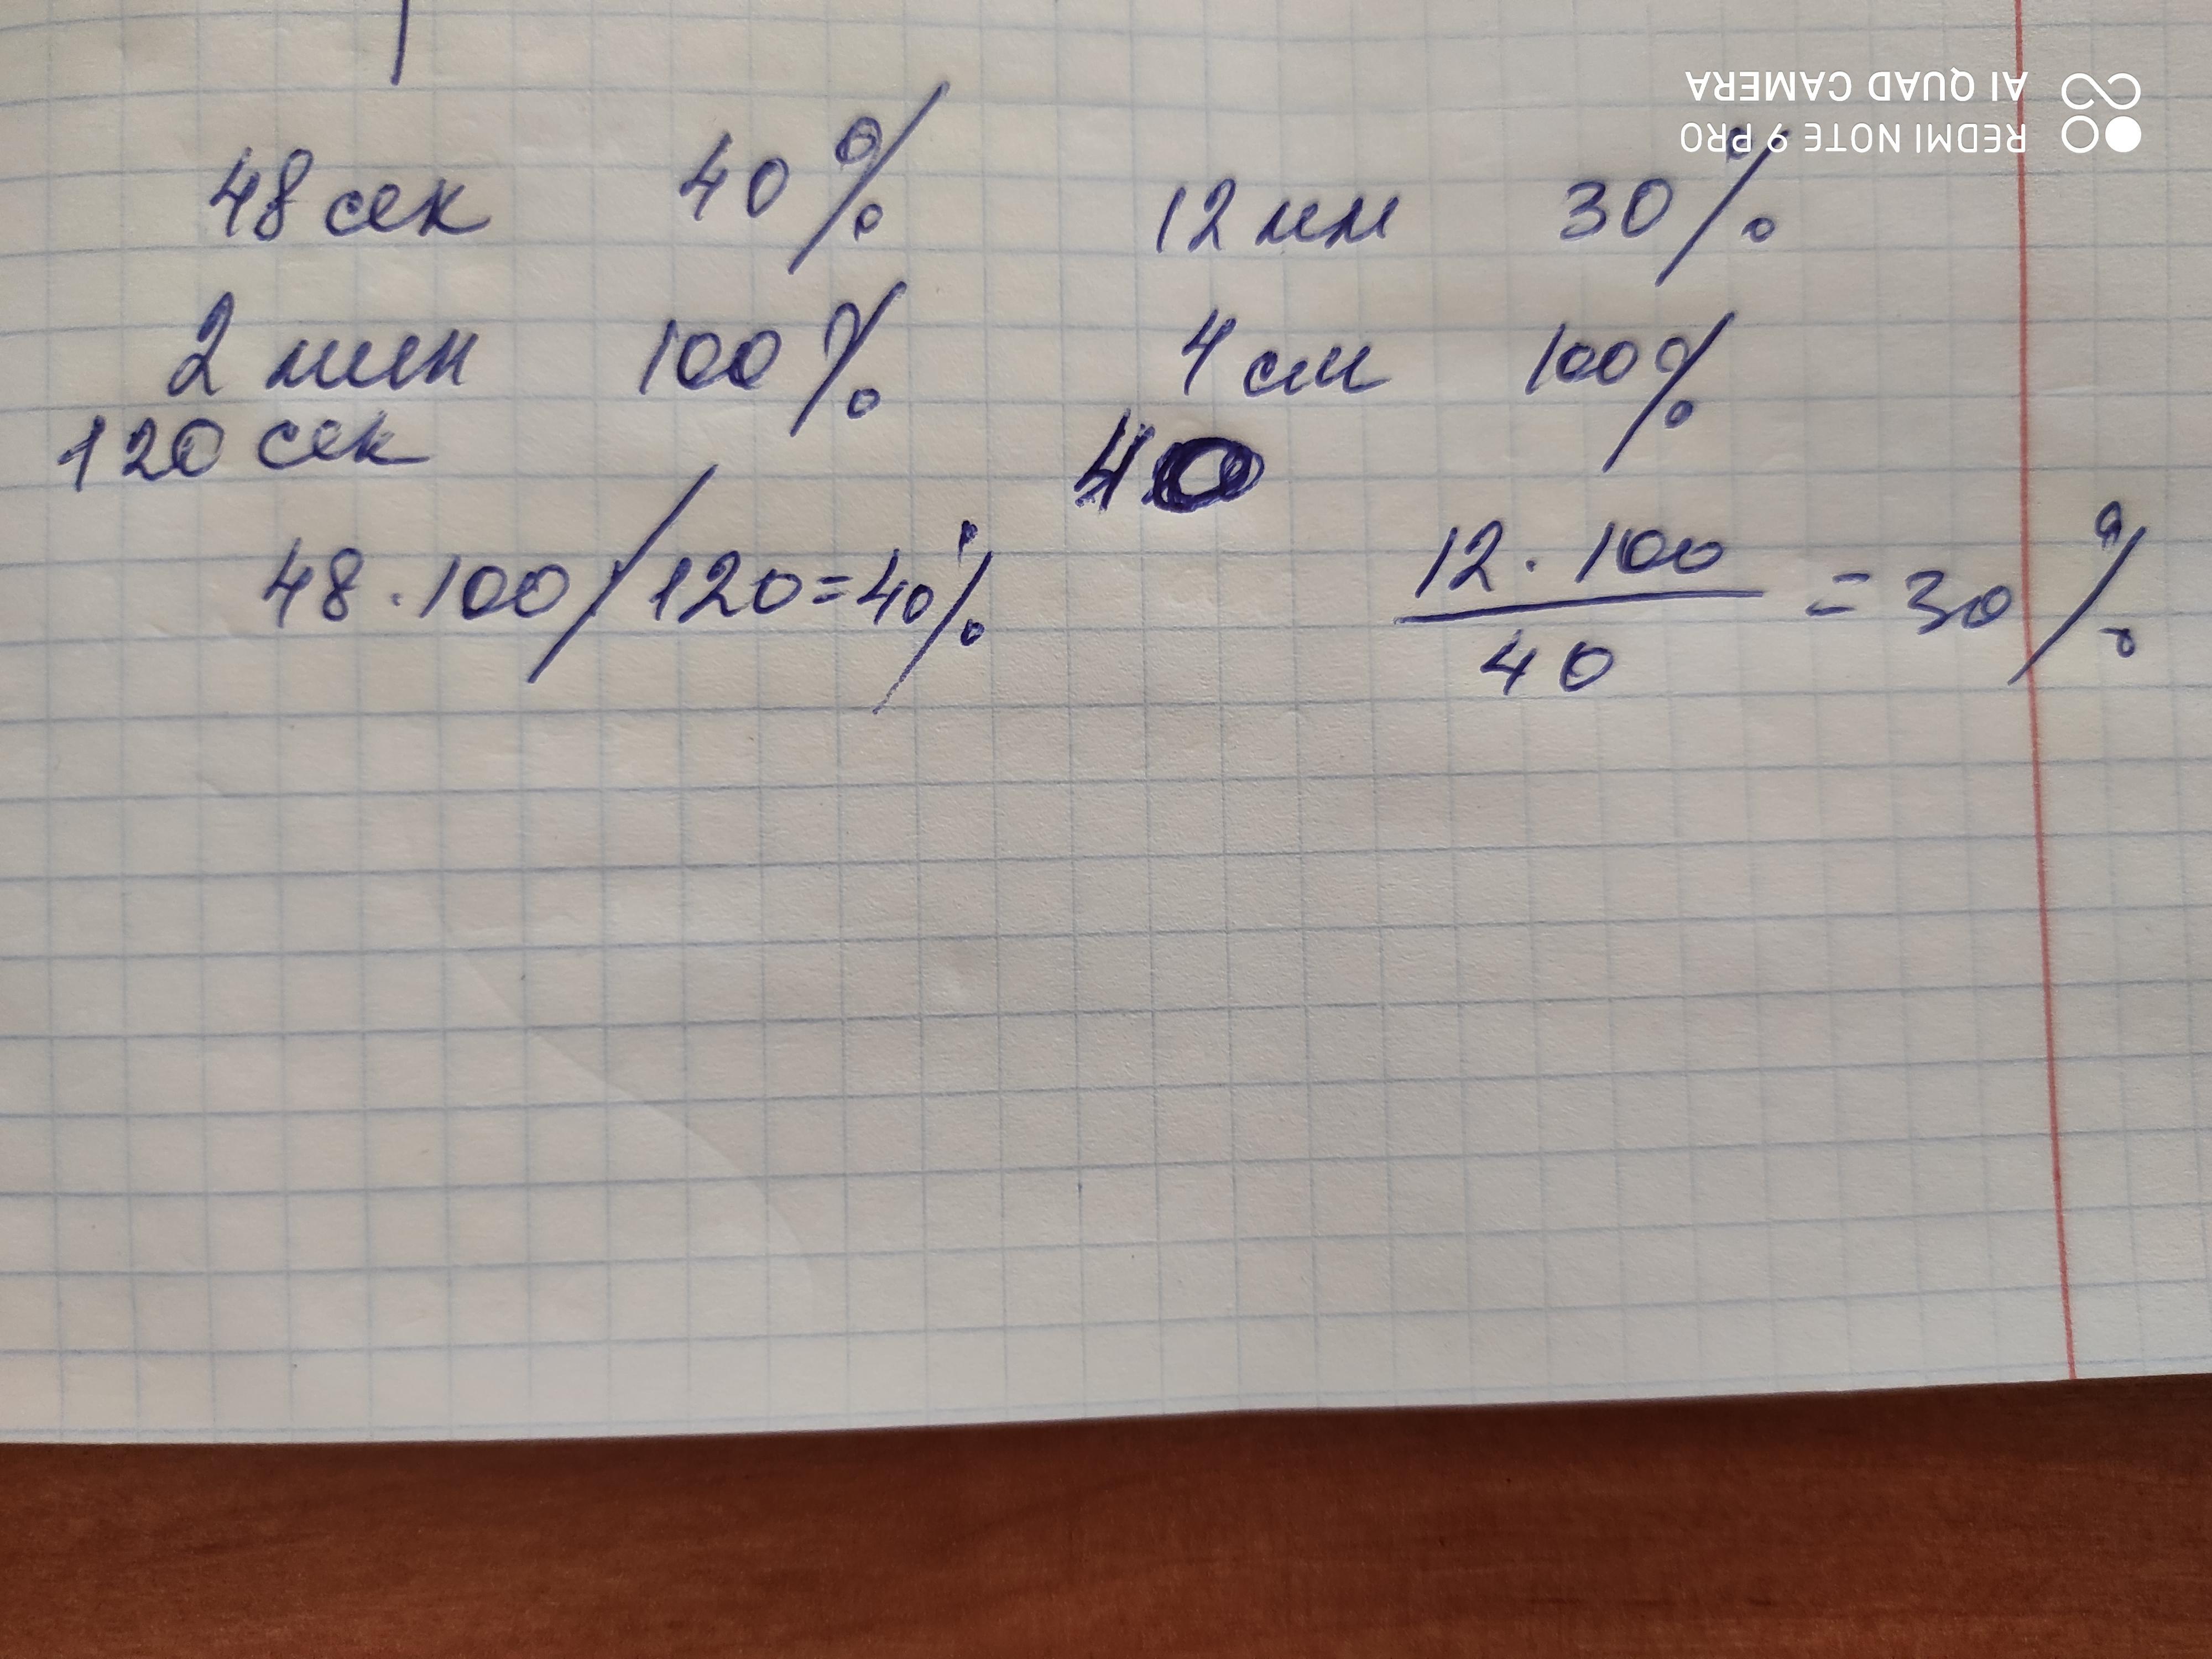 48 сек 40 %
2 мин 100 %
120 сек
48 · 100 / 120 = 40 %
12 мм 30 %
4 см 100 %
40
12 · 100
40
= 30 %
REDMI NOTE 9 PRO
AI QUAD CAMERA